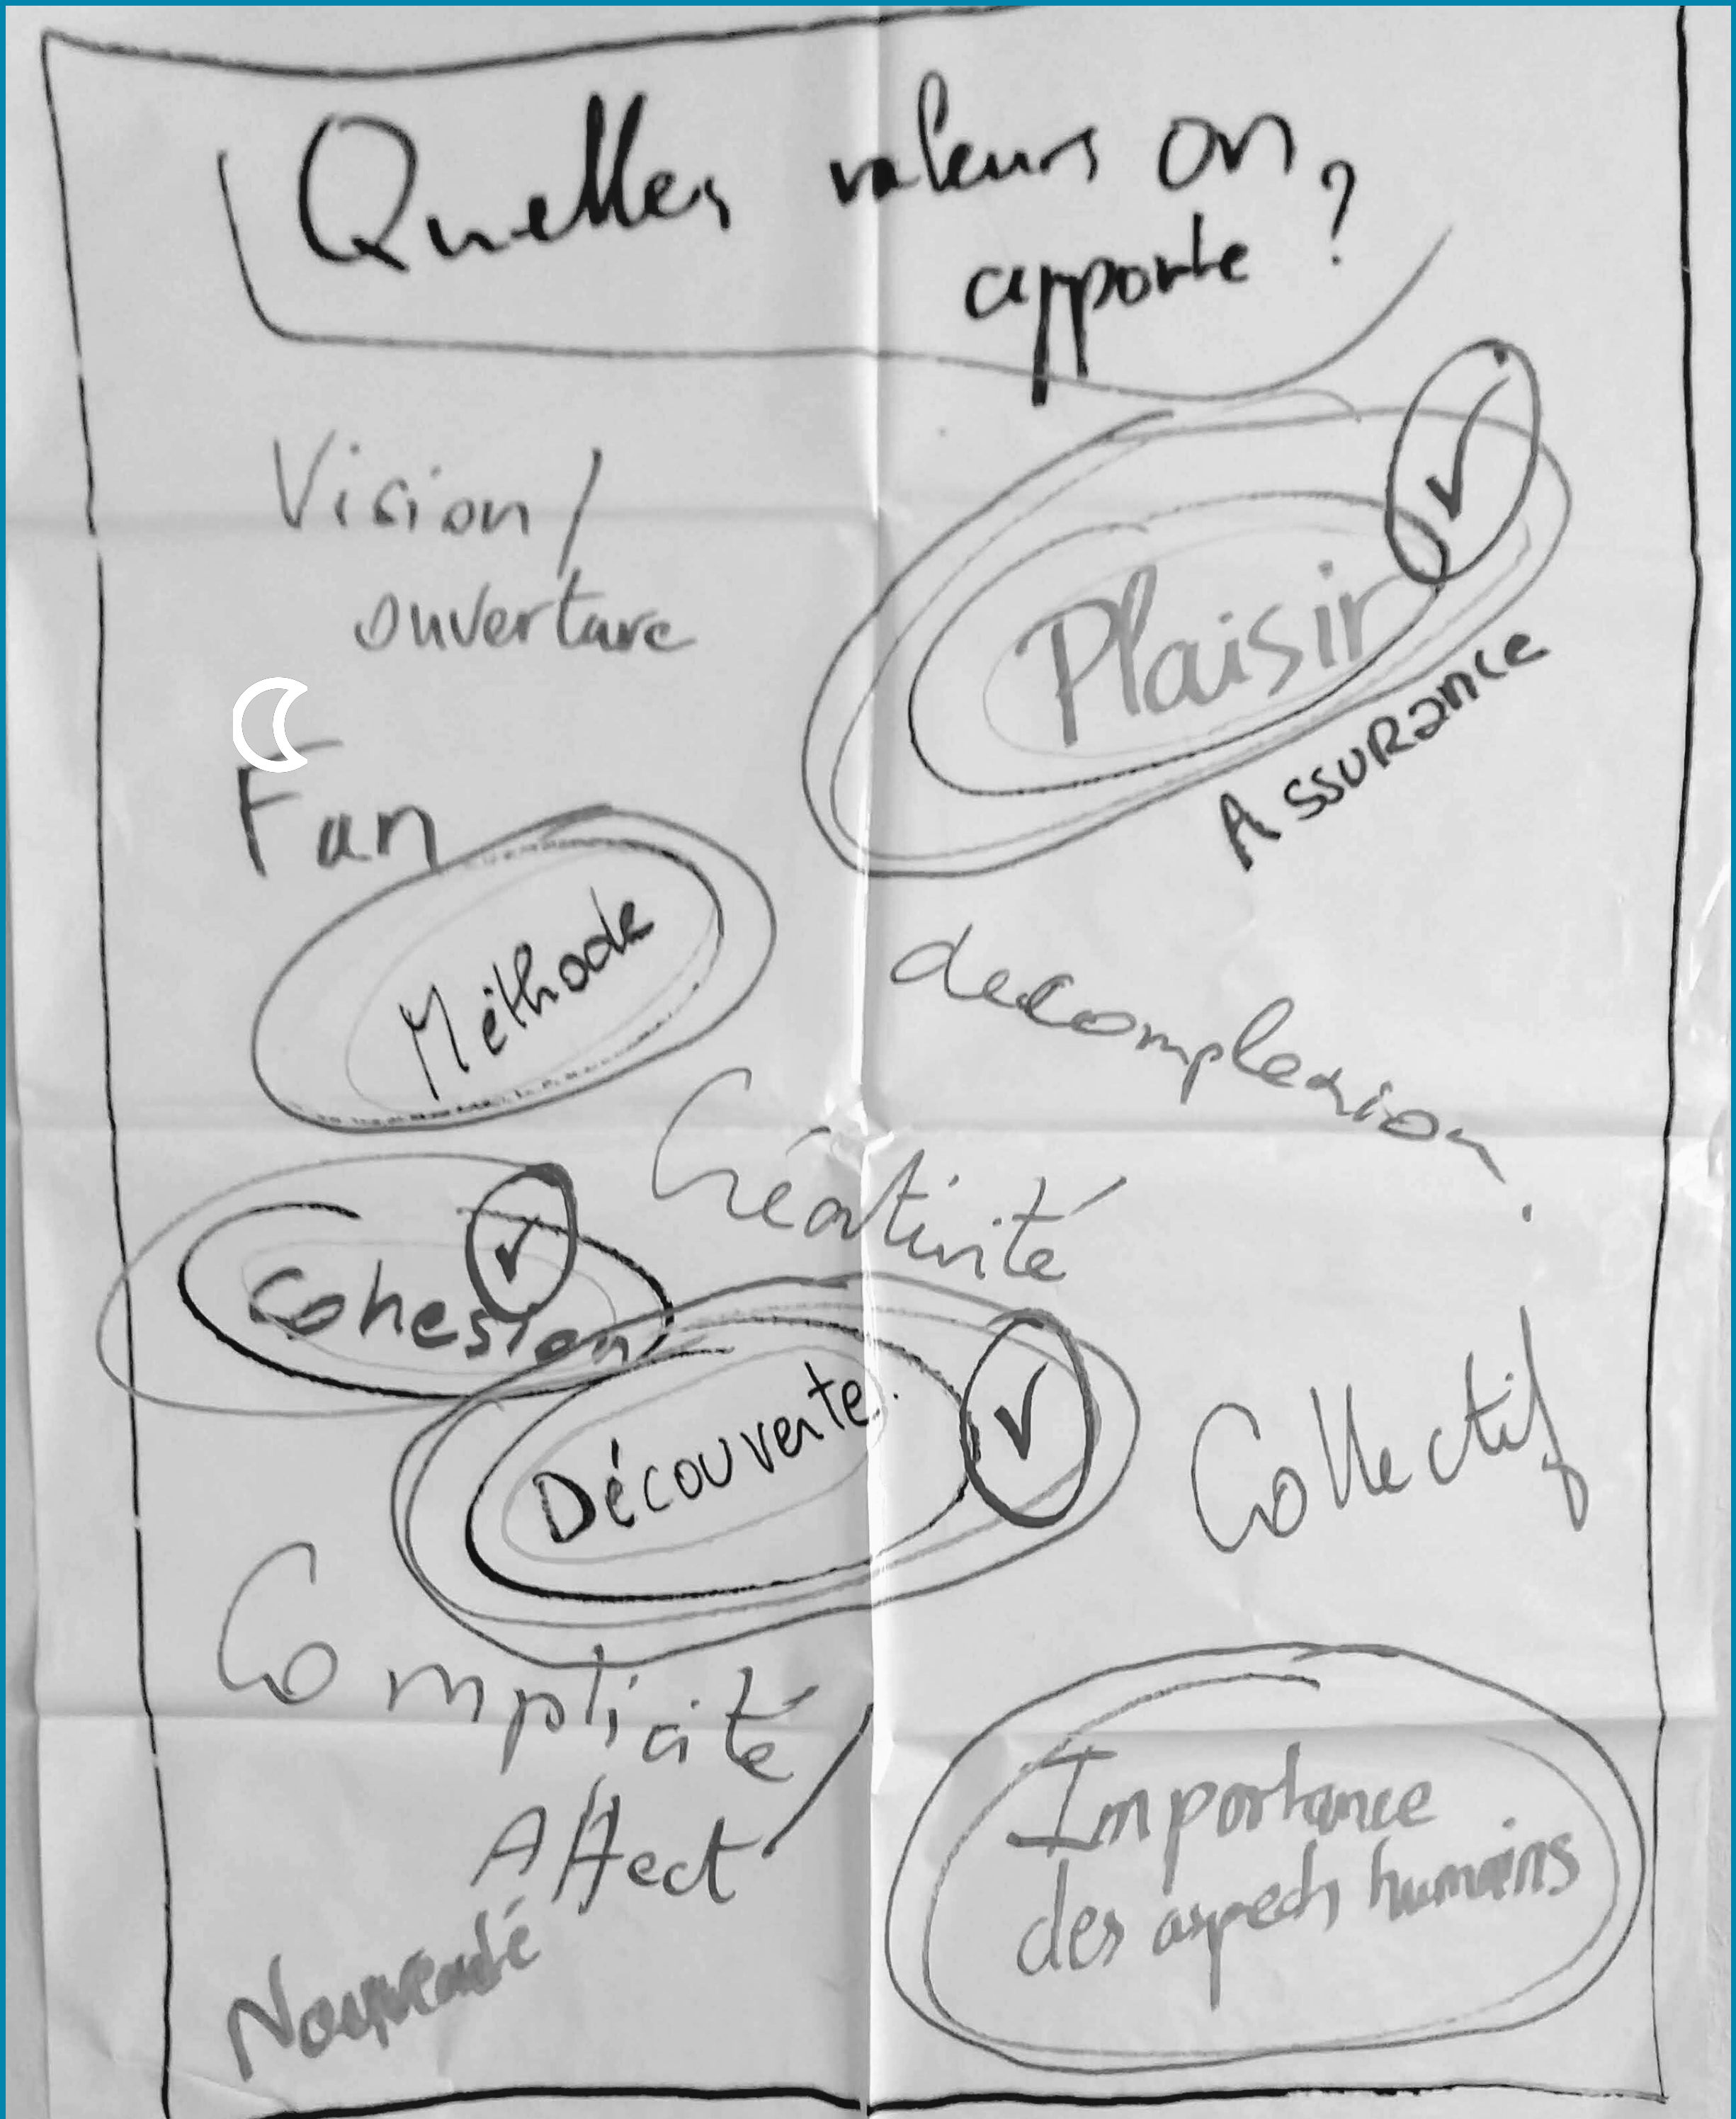 Quelles valeurs on
apporte ?
Vision /
ouverture
Plaisir
Assurance
Fun
Méthode
decomplexion
Créativité
Cohesion
Découverte
Collectif
Complicité /
Affect
Importance
des aspects humains
Nouveauté